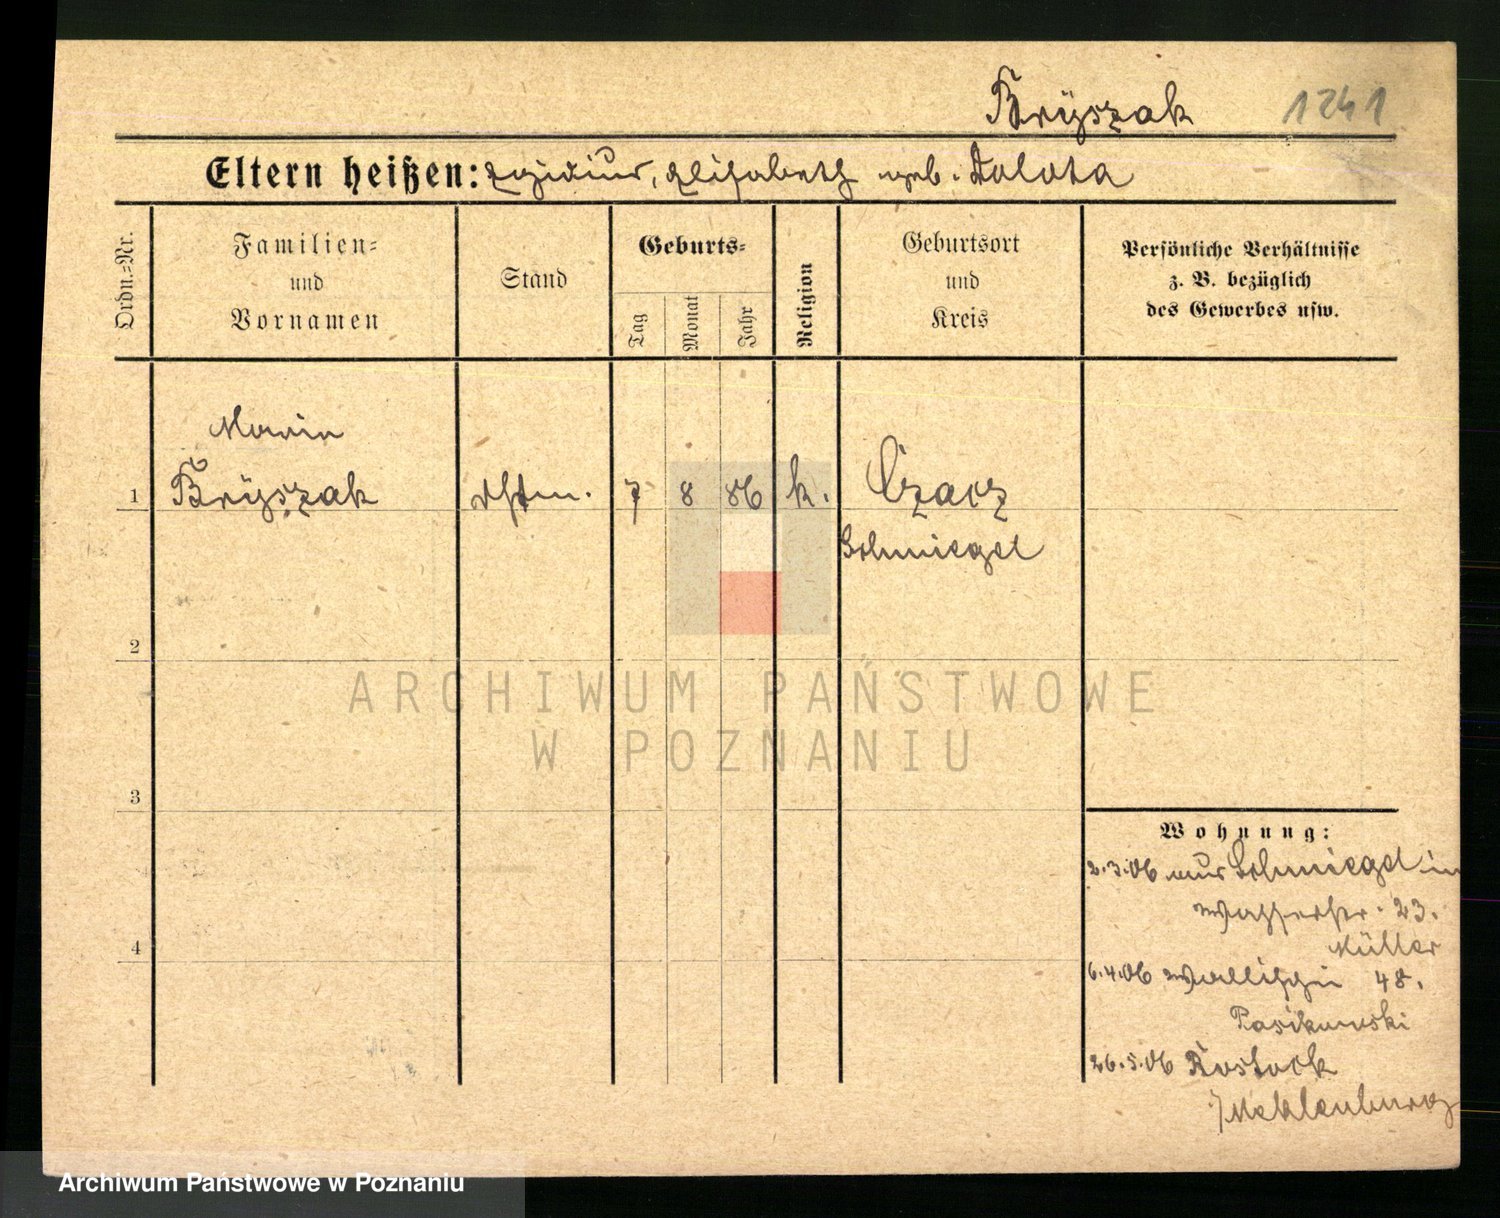 Bryszak 1241
Eltern heißen: Egidius, Elisabeth geb. Dolota
Ordn.=Nr.
Familien=
und
Vornamen
Stand
Geburts=
Tag
Monat
Jahr
Religion
Geburtsort
und
Kreis
Persönliche Verhältnisse
z. B. bezüglich
des Gewerbes usw.
Marie
1 Bryszak 7 8 86 k. Czacz
Schmiegel
2
ARCHIWUM PAŃSTWOWE
W POZNANIU
3
Wohnung:
2.3.06 aus Schmiegel in
Wasserstr. 23.
Müller
4
6.4.06 Wallischei 48.
Pasikowski
26.5.06 Rostock
Meklenburg
Archiwum Państwowe w Poznaniu